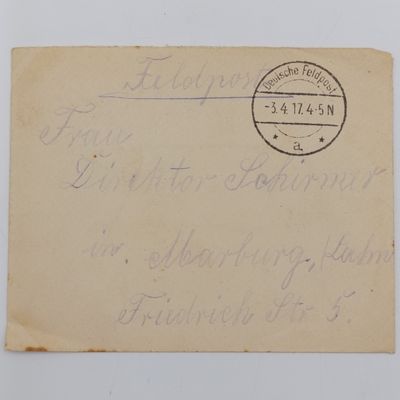 Feldpost
Deutsche Feldpost
-3.4.17.4-5N
* a. *
Frau
Direktor Schirmer
in Marburg, (Lahn
Friedrich Str 5.